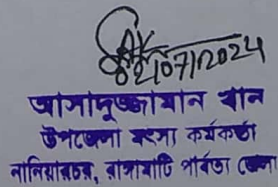 02/07/2024
আসাদুজ্জামান খান
উপজেলা মৎস্য কর্মকর্তা
নানিয়ারচর, রাঙ্গামাটি পার্বত্য জেলা